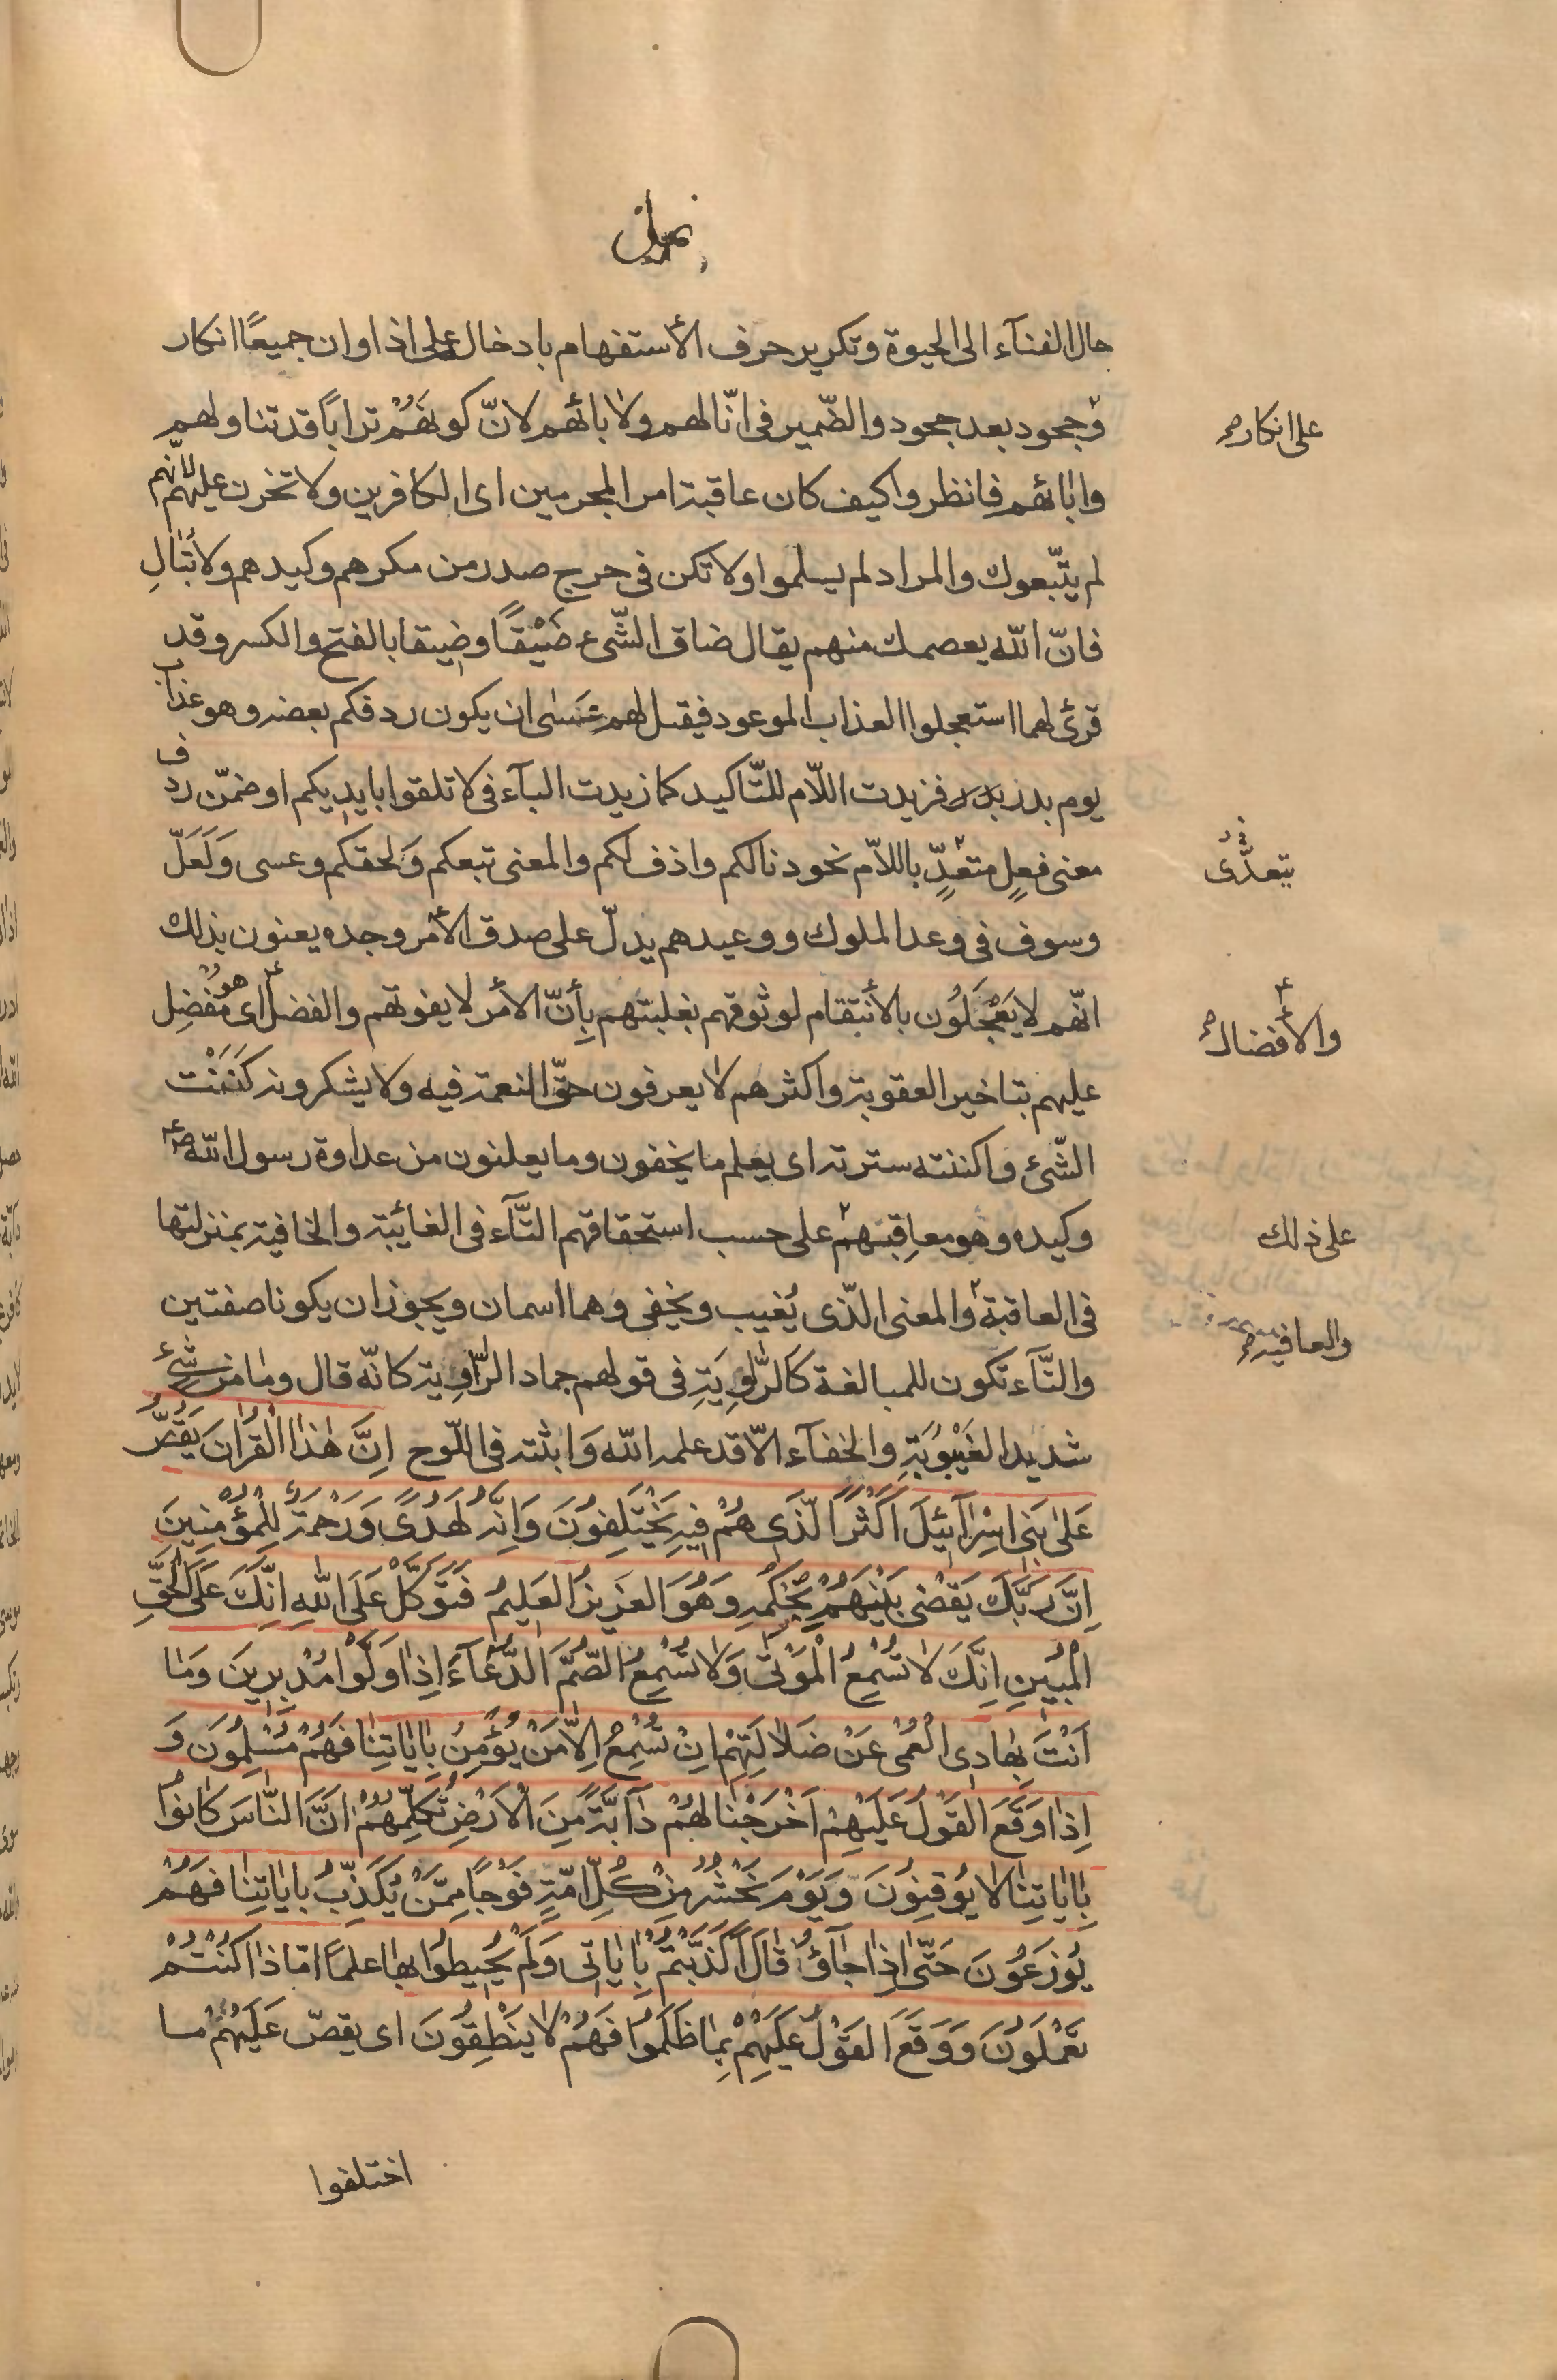 نمل
حال الفنآء الى الحيوة وتكرير حرف الأستفهام بادخال على اذا وان جميعًا انكار
وجحود بعد جحود والضّمير فى انّا لهم ولابائهم لانّ كونهَمُ ترابًا قد تناولهم
على انكار
واٰبائهم فانظروا كيف كان عاقبة امر المجرمين اى الكافرين ولا تحزن عليهم لانّهم
لم يتّبعوك والمراد لم يسلموا ولا تكن فى حرج صدر من مكرهم وكيدهم ولا تُبٰالِ
فانّ الله يعصمك منهم يقال ضاق الشّىء ضَيْقًا وضيقا بالفتح والكسر وقد
قرئ لهما استعجلوا العذاب الموعود فيقىل لهم عَسٰى ان يكون ردفكم بعضه وهو عذاب
يوم بدر فزيدت اللّام للتّاكيد كما زيدت البآء فى لا تلقوا بايديكم او ضمّن ردف
معنى فعلٍ متعدٍّ باللاّم نحو دنا لكم واذف لكم والمعنى تبعكم ولحقكم وعسى وَلَعَلّ
يتعدّى
وسوف فى وعد الملوك ووعيدهم يدلّ على صدق الأمر وجده يعنون بذلك
انّهم لا يَعْجَلُون بالأنتقام لوثوقهم بغلبتهم بِأَنّ الأمر لا يفوتهم والفضل اى هو مُفْضِل
والأفضال
عليهم بتاخير العقوبة واكثرهم لا يعرفون حقّ النعمة فيه ولا يشكرونه كَنَنْت
الشّئ واكننته سترته اى يعلم ما يخفون وما يعلنون من عداوة رسول الله ص
وكيده وهو معاقبهم على حسب استحقاقهم التّآء فى الغائبة والخافية بمنزلتها
على ذلك
فى العاقبة والمعنى الّذى يُغيب ويخفى وهما اسمان ويجوز ان يكونا صفتين
والعافية
والتّآء تكون للمبالغة كالرّاوِيَةِ فى قولهم حماد الرّاوِية كانّه قال وما من شئ
شديد الغَيْبُوبَةِ والخفآء الّا قد علمه الله وَ اثبته فى اللّوح اِنَّ هٰذا القُراٰنَ يَقُصُّ
عَلىٰ بَنى اِسْرآئيلَ اَكْثَرَ الّذَى هُمْ فيهِ يَخْتَلِفوُنَ وَاِنَّهُ لَهُدًى وَرَحْمَةٌ لِلْمُؤْمِنينَ
اِنَّ رَبَّكَ يَقْضى بَيْنَهُمْ بِحُكْمِهِ وَهُوَ العَزيزُ العَليمُ فَتَوَكَّلْ عَلَى اللهِ اِنَّكَ عَلَى الْحَقِّ
الْمُبينِ اِنَّكَ لا تُسْمِعُ الْمَوْتٰى وَلا تُسْمِعُ الصُّمَّ الدُّعآءَ اِذا وَلَّوْا مُدْبِرينَ وَمٰا
اَنْتَ بِهٰادِى الْعُمْىِ عَنْ ضَلالَتِهِمْ اِنْ تُسْمِعُ اِلّا مَنْ يُؤْمِنُ بِاٰيٰاتِنٰا فَهُمْ مُسْلِمُونَ وَ
اِذٰا وَقَعَ القَوْلُ عَلَيْهِمْ اَخْرَجْنٰا لَهُمْ دآبَّةً مِنَ الْاَرْضِ تُكَلِّمُهُمْ اَنَّ النّٰاسَ كٰانُوا
بِاٰيٰاتِنٰا لا يُوقِنوُنَ وَيَوْمَ نَحْشُرُ مِنْ كُلِّ اُمّةٍ فَوْجًا مِمَّنْ يُكَذِّبُ بِاٰيٰاتِنٰا فَهُمْ
يُوزَعُونَ حَتّىٰ اِذٰا جٰآؤُا قٰالَ اَكَذَّبْتُمْ بِاٰيٰاتى وَلَمْ تُحيطُوا بِهٰا عِلْمًا امّاذٰا كُنْتُمْ
تَعْمَلُونَ وَوَقَعَ القَوْلُ عَلَيْهِمْ بِمٰا ظَلَمُوا فَهُمْ لا يَنْطِقُونَ اى يقصّ عَلَيْهُمْ ما
اختلفوا